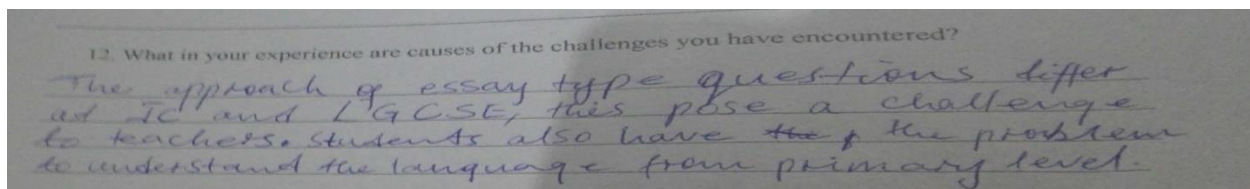 12. What in your experience are causes of the challenges you have encountered?
The approach of essay type questions differ
at JC and LGCSE, this pose a challenge
to teachers. Students also have the problem
to understand the language from primary level.